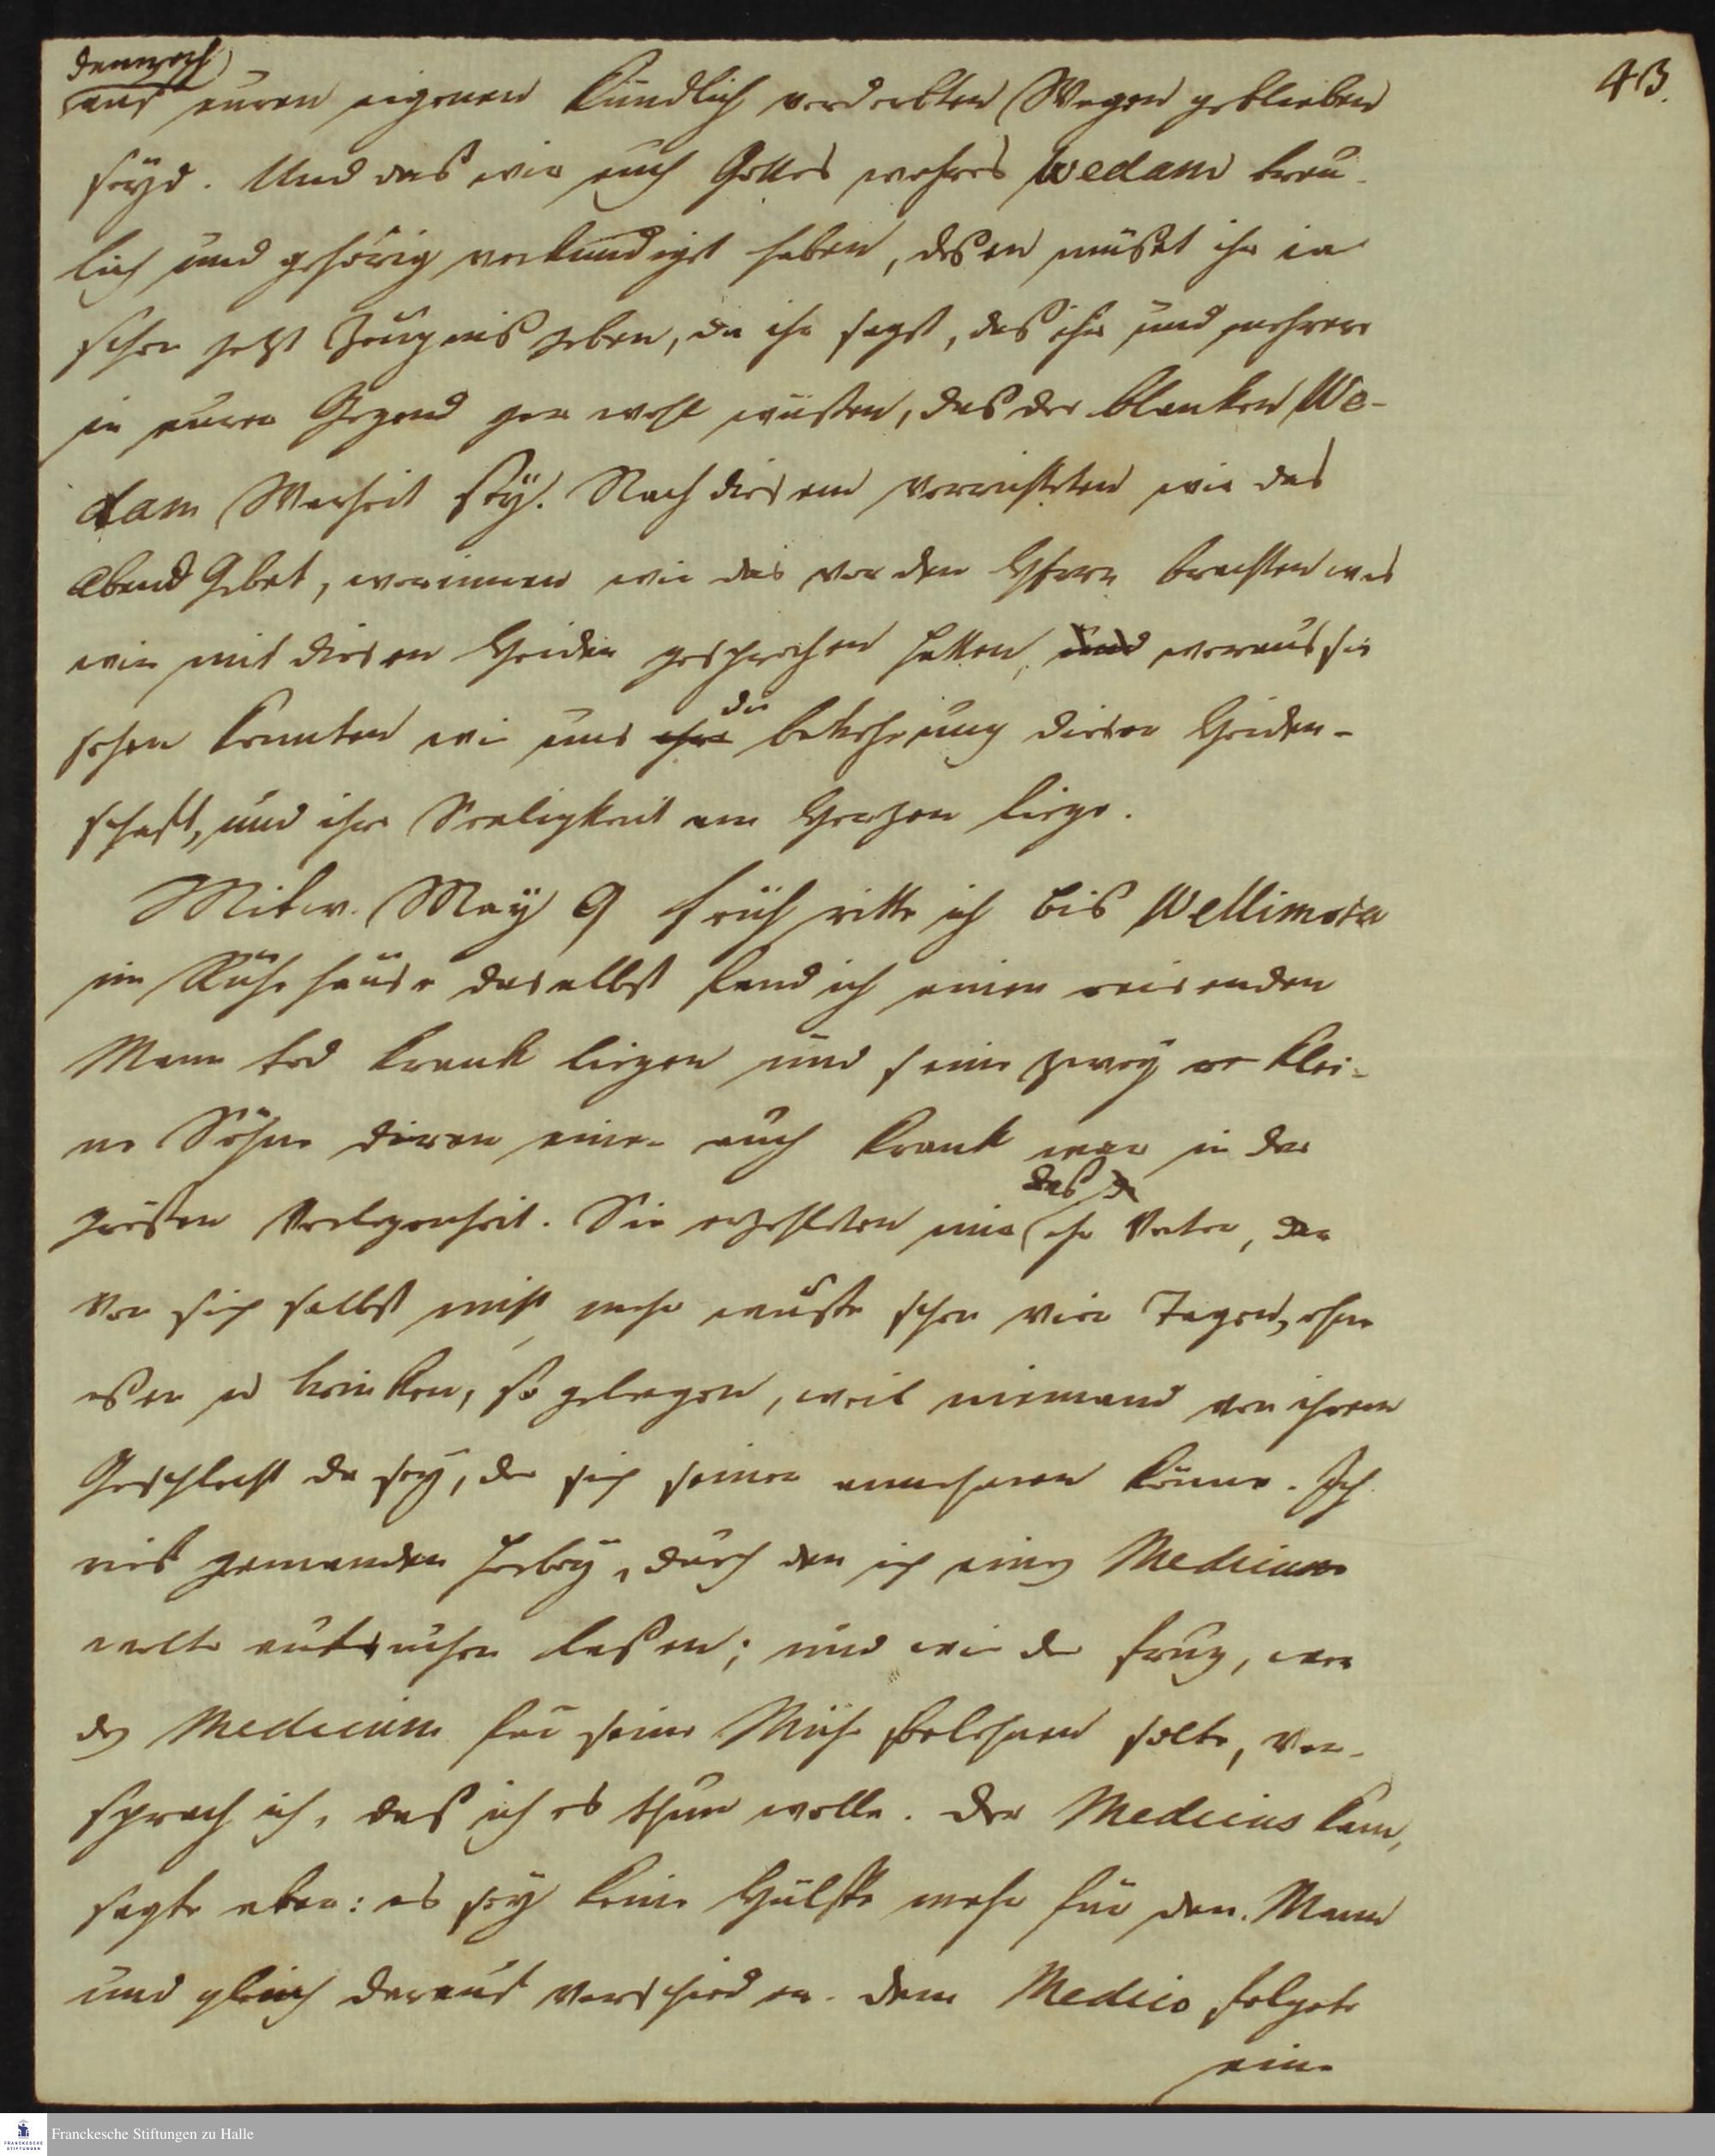 43.
dennoch
auf euren eigenen kündlich verderbten Wegen geblieben
seÿd. Und das wir euch Gottes wahres Wedam treu-
lich und gehörig verkündiget haben, deßen müßet ihr ja
schon jetzt Zeügnis geben, da ihr sagt, das ihr und mehrere
in eurer Gegend gar wohl wüßten, das der blanken We-
dam Warheit seÿ. Nach diesem verrichteten wir das
Abend Gebet, worinnen wir das vor den Herrn brachten was
wir mit diesen Heiden gesprochen hatten, und woraus sie
sehen konnten wie uns ihre die bekehrung dieser Heiden-
schaft, und ihre Seeligkeit am Herzen liege.
Mitw. Maÿ 9 früh ritte ich bis Wellimora
im Ruhehause daselbst fand ich einen reisenden
Mann tod krank liegen und seine zweÿ klei-
ne Söhne deren einer auch krank war in der
grösten Verlegenheit. Sie erzehleten mir das ihr Vater, der
von sich selbst nicht mehr wuste schon vier Tagen, ohne
eßen u trinken, so gelegen, weil niemand von ihrem
Geschlecht da seÿ, der sich seiner annehmen könne. Ich
rief jemanden herbeÿ, durch den ich einen Medicum
wolte aufsuchen laßen; und wie der frug, wer
den Medicum für seine Mühe belohnen solte, ver-
sprach ich, das ich es thun wolle. Der Medicus kam,
sagte aber: es seÿ keine Hülffe mehr für den Mann
und gleich darauf verschied er. Dem Medico folgete
eine
Franckesche Stiftungen zu Halle